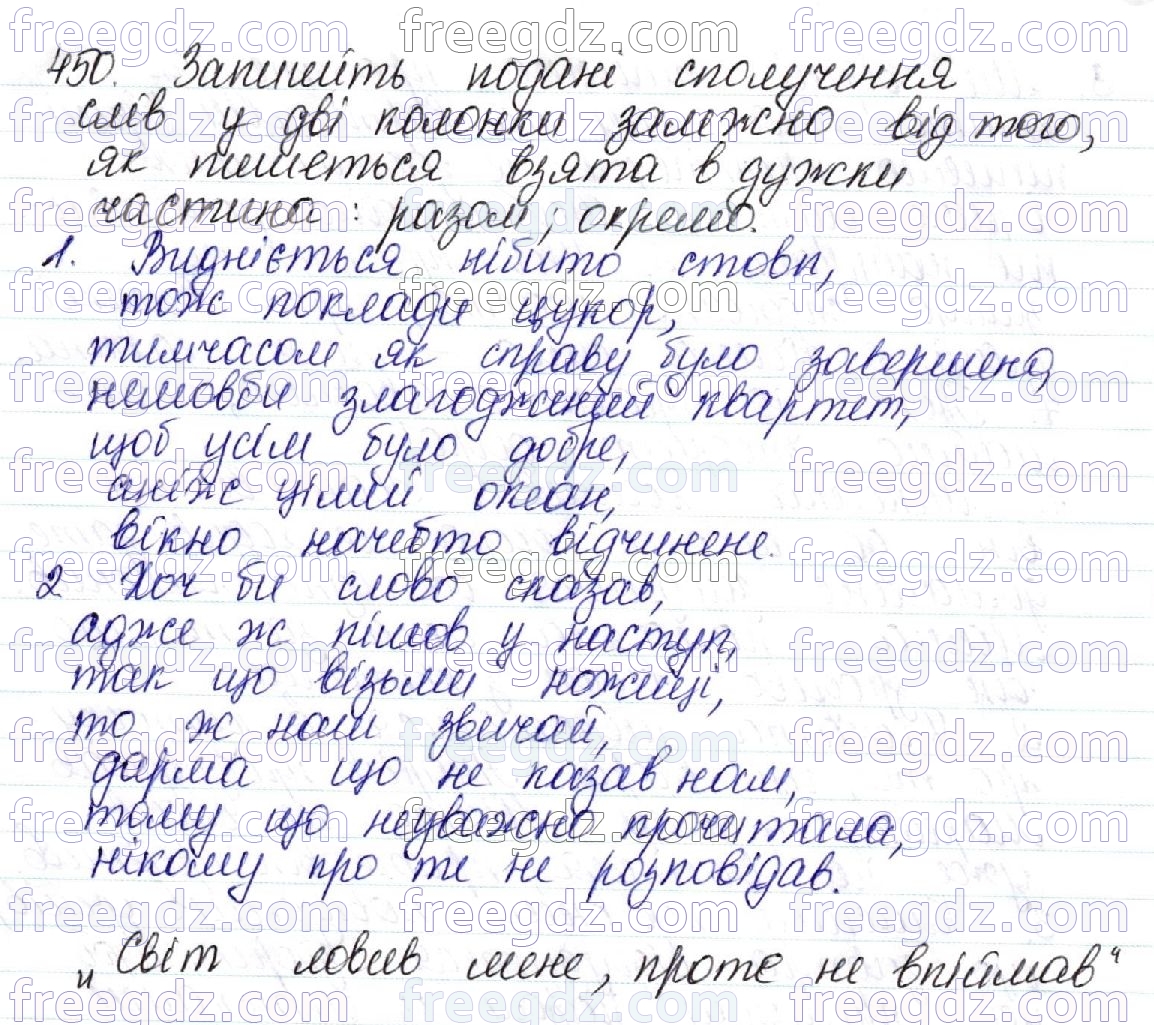 450. Запишіть подані сполучення
слів у дві колонки залежно від того,
як пишеться взята в дужки
частина: разом; окремо.
1. Видніється нібито стовп,
тож поклади цукор,
тимчасом як справу було завершено,
немовби злагоджений квартет,
щоб усім було добре,
аніж цілий океан,
вікно начебто відчинене.
2 Хоч би слово сказав,
адже ж пішов у наступ,
так що візьми ножиці,
то ж наш звичай,
дарма що не казав нам,
тому що неуважно прочитала,
нікому про те не розповідав.
„Світ ловив мене, проте не впіймав“